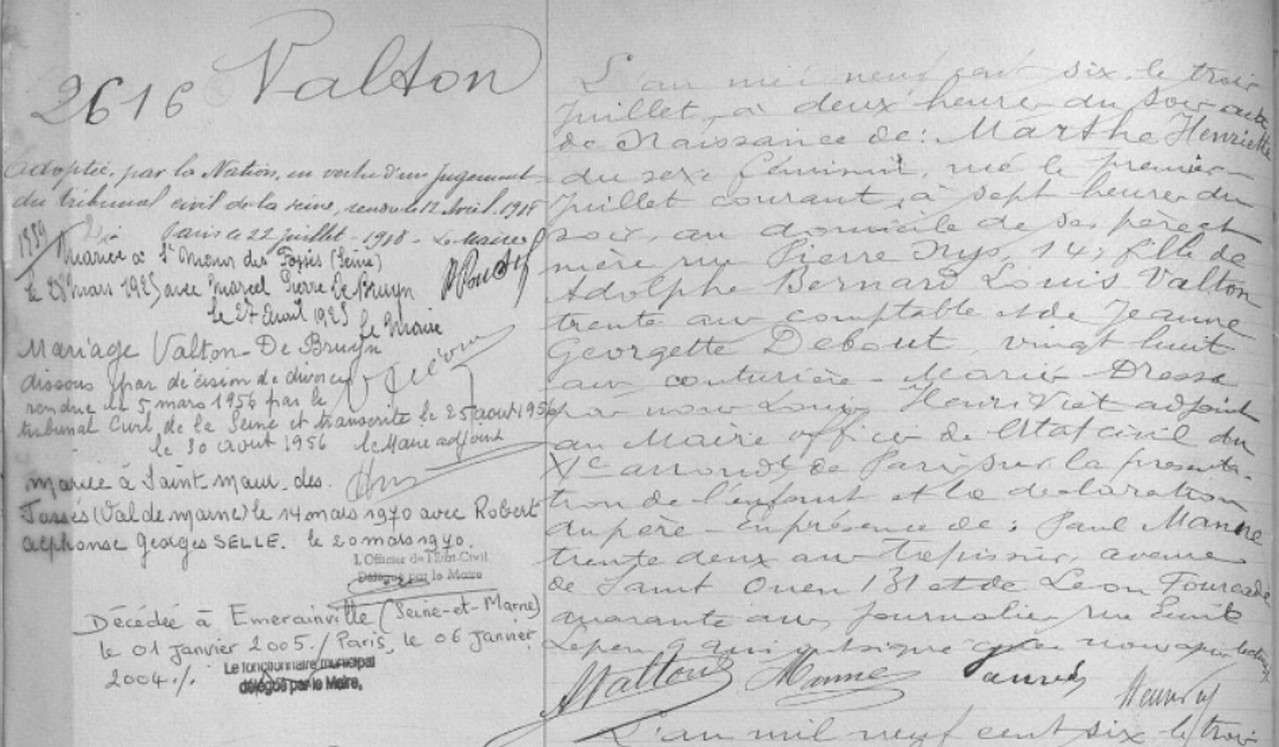 2616 Valton
Adoptée, par la Nation, en vertu d'un jugement
du tribunal civil de la seine, rendu le 12 Avril 1918
Paris le 22 juillet 1918 - Le Maire
1989
Mariée à St Maur des Fossés (Seine)
le 28 mars 1925 avec Marcel Pierre De Bruyn
le 27 Avril 1925 le Maire
Mariage Valton-De Bruyn
dissous par décision de divorce
rendue le 5 mars 1956 par le
tribunal Civil de la Seine et transcrite le 25 aout 1956
le 30 aout 1956 le Maire adjoint
mariée à Saint maur. des.
Fossés (Val de marne) le 14 mars 1970 avec Robert
alphonse Georges SELLE. le 20 mars 1970.
L'Officier de l'Etat-Civil
Délégué par le Maire
Décédée à Emerainville (Seine-et-Marne)
le 01 janvier 2005./Paris, le 06 janvier
2004./.
Le fonctionnaire municipal
délégué par le Maire,
L'an mil neuf cent six, le trois
Juillet, à deux heures du soir acte
de Naissance de: Marthe Henriette
du sexe féminin, née le premier
Juillet courant, à sept heures du
soir, au domicile de ses père et
mère rue Pierre Nys, 14; fille de
Adolphe Bernard Louis Valton
trente ans comptable et de Jeanne
Georgette Debout, vingt huit
ans couturière - Mariés - Dressé
par nous Louis Henri Viet adjoint
au Maire officier de l'Etat civil du
XIe arrondt de Paris sur la présenta-
tion de l'enfant et la déclaration
du père - En présence de: Paul Manne
trente deux ans tapissier, avenue
de Saint Ouen 131 et de Leon Fourcade
quarante ans, journalier, rue Emile
Lepeu 9 qui ont signé avec nous après lecture
Valton Manne
L'an mil neuf cent six le trois